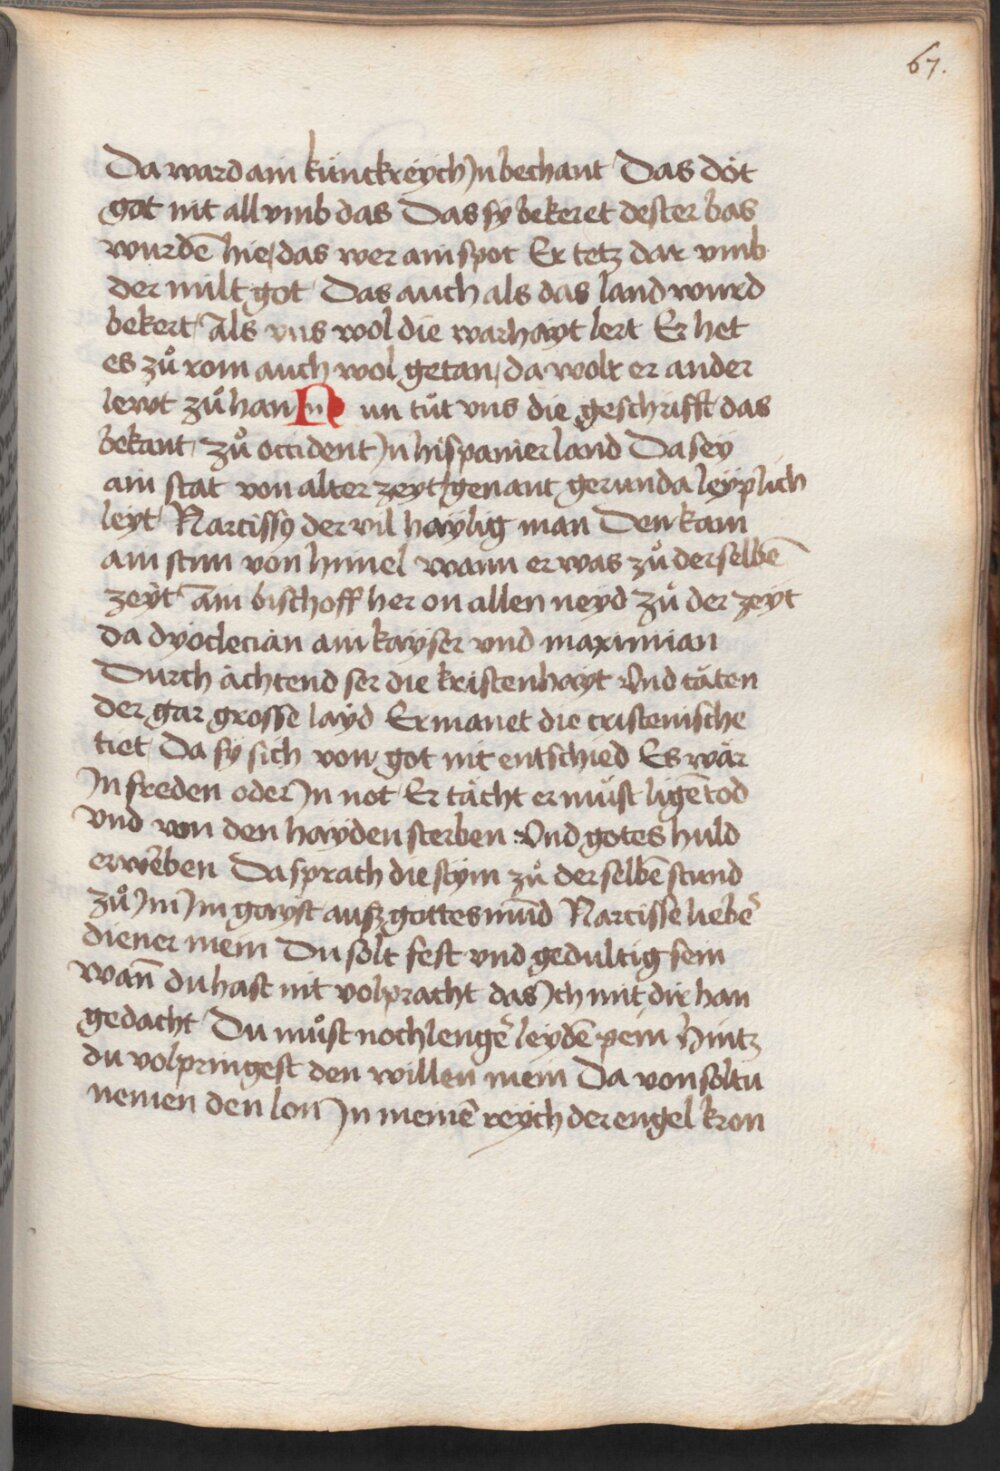 67.
Da ward ain künckreych Jn bechant Das döt
got nit all vmb das Das sy bekeret dester bas
wurdē hie das wer ain spot Er tetz dar vmb
der milt got Das auch als das land wurd
bekert Als vns wol die warhayt lert Er het
es zů rom auch wol getan da wolt er ander
lewt zů han Nun tůt vns die geschrifft das
bekant zů occident Jn hispanier land Da sey
ain stat von alter zeyt genant gerunda leyplich
leyt Narcissy der vil haylig man Den kam
ain stim von himel wann er was zů der selbē
zeyt ain bischoff her on allen neyd zů der zeyt
da dyoclecian ain kayser vnd maximian
Durch ächtend ser die kristenhayt Vnd täten
der gar grosse layd Er manet die cristenische
tiet Da sy sich von got nit entschied Es wär
Jn freden oder Jn not Er tächt er müst ligē tod
vnd von den hayden sterben Vnd gotes huld
erwērben Da sprach die stym zů der selbē stund
zů Jm Jm gayst ausz gottes mūd Narcisse lieber
diener mein Du solt fest vnd gedultig sein
wan̄ du hast nit volpracht das Jch mit dir han
gedacht Du můst noch lenger leydē pein hintz
du volpringest den willen mein Da von soltu
nemen den lon Jn meinē reych der engel kron